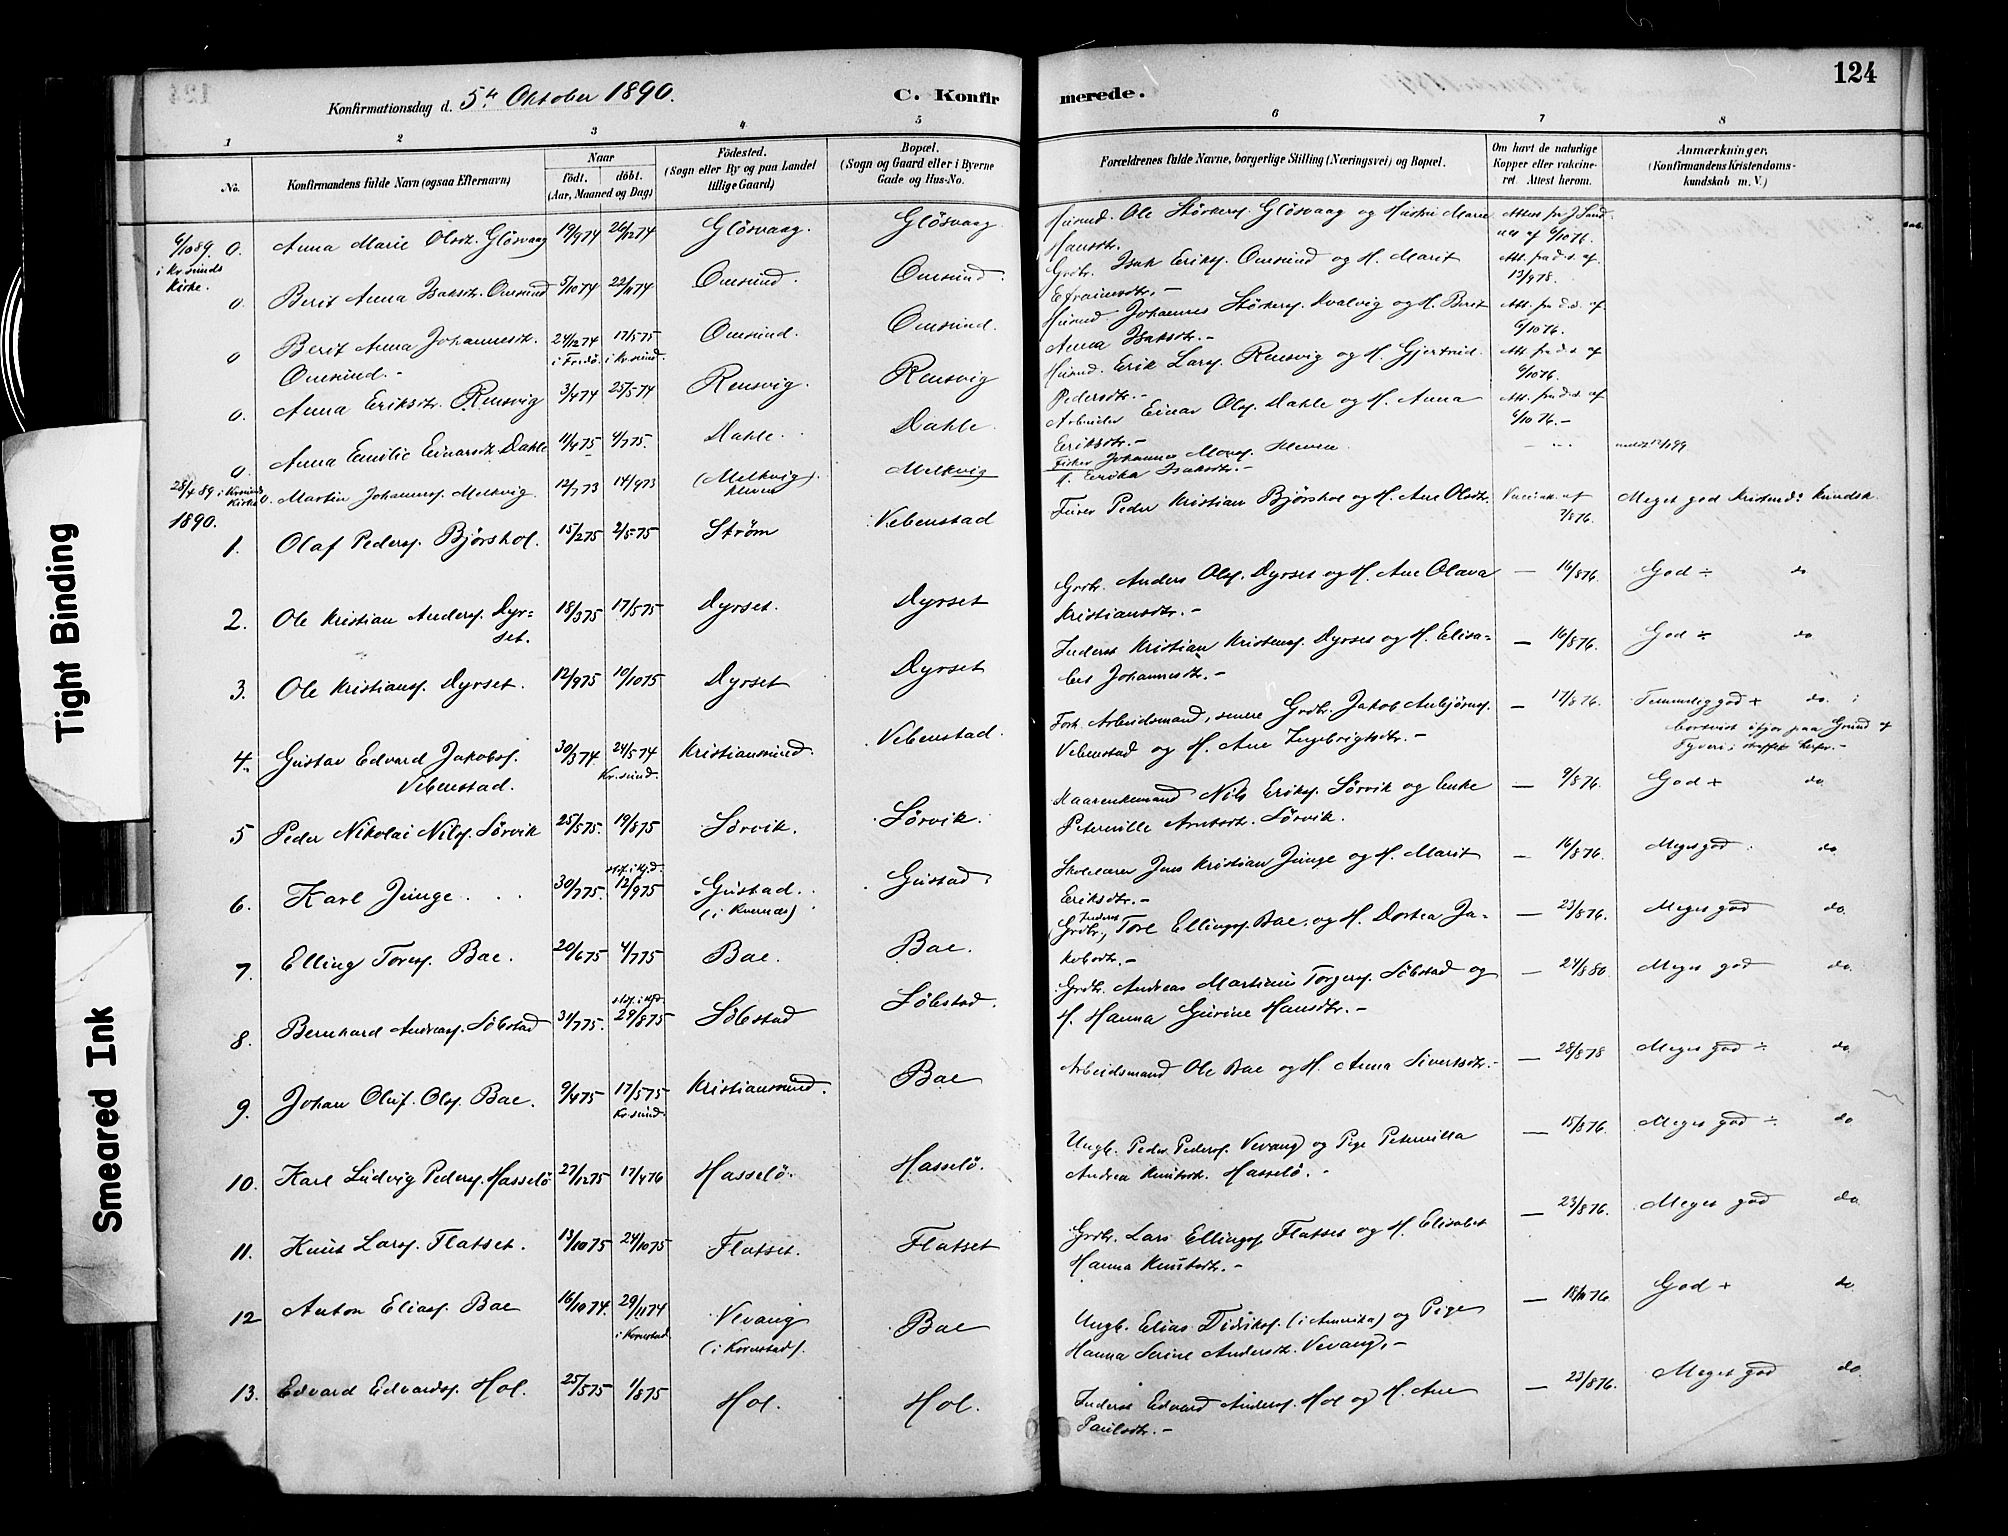 124
Konfirmationsdag d. 5te Oktober 1890.
C. Konfirmerede.
1 2 3 4 5 6 7 8
No.
Konfirmandens fulde Navn (ogsaa Efternavn)
Naar
födt. döbt.
(Aar, Maaned og Dag)
Födested.
(Sogn eller By og paa Landet
tillige Gaard)
Bopæl.
(Sogn og Gaard eller i Byerne
Gade og Hus-No.
Forældrenes fulde Navne, borgerlige Stilling (Næringsvei) og Bopæl.
Om havt de naturlige
Kopper eller vakcine-
ret Attest herom.
Anmærkninger.
(Konfirmandens Kristendoms-
kundskab m. V.)
6/10 89 i Kr.sunds Kirke. 0. Anna Marie Olsdt. Glösvaag 19/9 74 26/12 74 Glösvaag. Glösvaag
Husmd. Ole Störkers. Glösvaag og Hustru Marie
Hansdtr.
0. Berit Anna Isaksdt. Omsund 5/10 74 22/11 74 Omsund. Omsund.
Grdbr. Isak Eriks. Omsund og H. Marit
Efraimsdtr. - Att. fra d. s. af 13/9 78.
0 Berit Anna Johannesdt. Omsund. - 24/12 74 i Fredö. 17/5 75 i Kr.sund. Omsund. Omsund.
Husmd. Johannes Störkers. Kvalvig og H. Berit
Anna Isaksdt. - Att. fra d. s. af 6/10 76.
0. Anna Eriksdtr. Rensvig 3/4 74 25/5 74 Rensvig. Rensvig
Husmd. Erik Lars. Rensvig og H. Gjertrud
Pedersdtr. - Att. fra d. s. af 6/10 76.
0. Anna Emilie Einarsdt. Dahle 11/4 75 4/7 75. Dahle. Dahle.
Arbeider Einar Ols. Dahle og H. Anna
Eriksdtr. - Att. fra d. s. af 6/10 76. -
28/4 89 i Kr.sunds Kirke 0. Martin Johanness. Melkvig 12/7 73 14/9 73 (Melkvig) Melkvig
Fisker Johannes
H. Erika Isaksdtr. -
1890.
1. Olaf Peders. Björshol. 15/2 75 2/5 75 Ström Vebenstad
Furer Peder Kristian Björshol og H. Ane Olsdtr. Vaccin. af 7/8 76. Meget god Kristend: kundsk.
2. Ole Kristian Anders. Dyr=
set. 18/3 75 17/5 75 Dyrset. Dyrset
Grdbr. Anders Ols. Dyrset og H. Ane Olava
Kristiansdtr. - — 16/8 76. God ÷ do
3. Ole Kristians. Dyrset. 12/9 75 10/10 75 Dyrset Dyrset
Inderst Kristian Kristens. Dyrset og H. Elisa-
bet Johannesdt. - — 16/8 76. God ÷ do
4. Gustav Edvard Jakobs.
Vebenstad. 30/3 74 24/5 74 Kr.sund. Kristianssund. Vebenstad.
Forh. Arbeidsmand, senere Grdbr. Jakob Asbjörns.
Vebenstad og H. Ane Ingebrigtsdtr. - — 17/8 76. Temmelig god + do. ;
bortvist ifjor paa Grund af
Tyveri;
5 Peder Nikolai Nils. Sörvik 25/5 75. 19/8 75 Sörvik. Sörvik.
Nils Eriks. Sörvik og Enke
Peternille Arntsdt. Sörvik. — 9/8 76. God + do
6. Karl Junge. 30/7 75. 12/9 75 Gustad. (i Kvernæs) Gustad.
Skolelærer Jens Kristian Junge og H. Marit
Eriksdtr. - — 16/8 76. Meget god do.
7. Elling Tores. Bae. 20/6 75 4/7 75 Bae. Bae.
Inderst
(Grdbr.) Tore Ellings. Bae. og H. Dortea Ja-
kobsdtr. - — 23/8 76. Meget god do.
8. Bernhard Andreas. Löbstad 31/7 75. 29/8 75 Löbstad Löbstad.
Grdbr. Andreas Martinus Torgers. Löbstad og
H. Hanna Gurine Hansdtr. - — 24/8 80. Meget god do.
9. Johan Oluf Ols. Bae. 9/4 75 17/5 75 Kr.sund. Kristianssund. Bae
Arbeidsmand Ole Bae og H. Anna Sivertsdtr. - — 28/8 78 Meget god ÷ do.
10. Karl Ludvig Peders. Hasselö 27/12 75 17/4 76 Hasselö. Hasselö.
Ungk. Peder Peders. Vevang og Pige Peternilla
Andrea Knutsdt. Hasselö. - — 15/8 76. Meget god ÷ do
11. Knut Lars. Flatset. 13/10 75 24/10 75 Flatset. Flatset
Grdbr. Lars Ellings. Flatset og H. Elisabet
Hanna Knutsdtr. - — 23/8 76. Meget god do.
12 Anton Elias. Bae 16/10 74. 29/11 74 i Kornstad Vevang (i Kornstad). Bae
Ungk. Elias Didriks. (i Amerika) og Pige
Hanna Serine Andersdt. Vevang. - — 18/11 76 God + do
13. Edvard Edvards. Hol. 25/5 75 1/8 75 Hol. Hol.
Inderst Edvard Anders. Hol og H. Ane
Paulsdtr. - — 23/8 76. Meget god do
Tight Binding
Smeared Ink